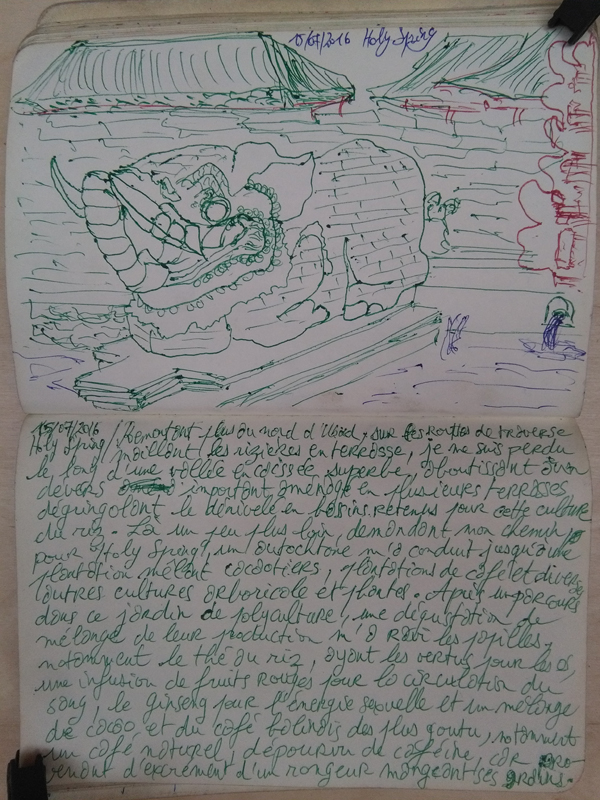 15/07/2016 Holy Spring
15/07/2016 / Remontant plus au nord d'Ubud, sur les routes de traverse
Holy Spring / maillant les rizières en terrasse, je me suis perdu
le long d'une vallée encaissée superbe, aboutissant à un
devers d'important aménagé en plusieurs terrasses
dégringolant le dénivelé en bassins retenus pour cette culture
du riz. Là un peu plus loin, demandant mon chemin
pour "Holy Spring", un autochtone m'a conduit jusqu'à une
plantation mêlant cocotiers, plantations de café et diverses
autres cultures arboricole et plantes. Après un parcours
dans ce jardin de polyculture, une dégustation de
mélange de leur production m'a ravi les papilles,
notamment le thé du riz, ayant les vertus pour les os,
une infusion de fruits rouges pour la circulation du
sang, le ginseng pour l'énergie sexuelle et un mélange
de cacao, et du café balinais des plus goutu, notamment
un café naturel, dépourvu de caféine, car pro-
venant d'excrément d'un rongeur mangeant ses grains.